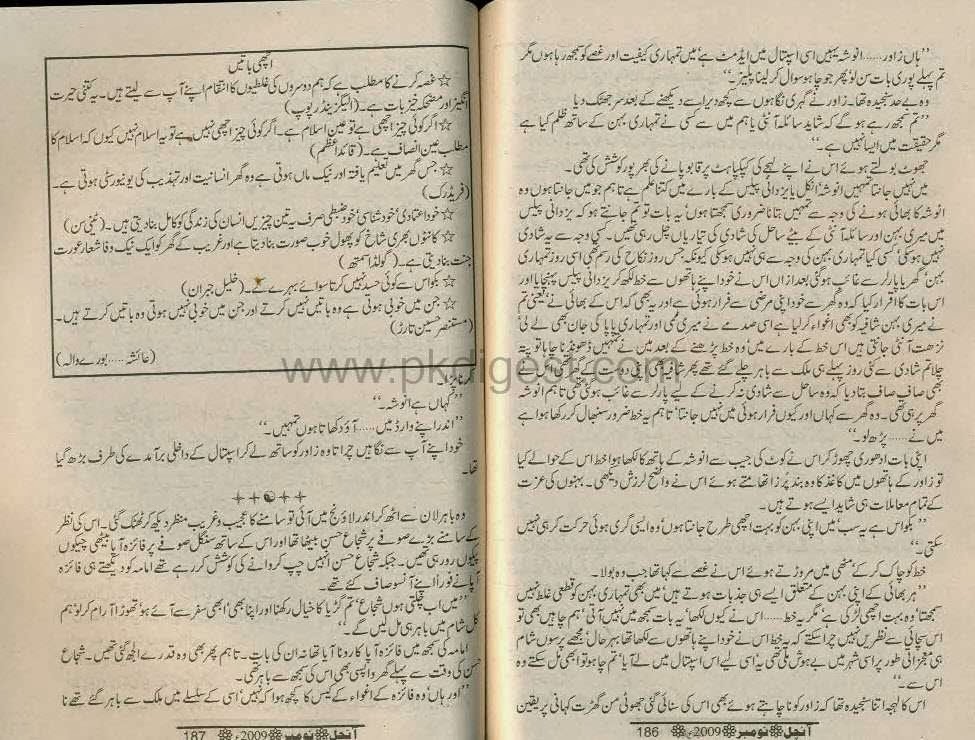 ”ہاں زاور……انوشہ یہیں اسی اسپتال میں ایڈمٹ ہے‘ میں تمہاری کیفیت اور غصے کو سمجھ رہا ہوں مگر
تم پہلے پوری بات سن لو‘ پھر جو چاہو سوال کر لینا پلیز۔“
وہ بے حد سنجیدہ تھا۔ زاور نے گہری نگاہوں سے کچھ دیر اسے دیکھنے کے بعد سر جھٹک دیا
”تم سمجھ رہے ہو گے کہ شاید سائلہ آنٹی یا ہم میں سے کسی نے تمہاری بہن کے ساتھ ظلم کیا ہے
مگر حقیقت میں ایسا نہیں ہے۔“
جھوٹ بولتے ہوئے اس نے اپنے لہجے کی کپکپاہٹ پر قابو پانے کی بھرپور کوشش کی تھی۔
میں نہیں جانتا تمہیں انوشہ‘ انکل یا یزدانی پیلس کے بارے میں کتنا علم ہے تاہم جو میں جانتا ہوں وہ
انوشہ کا بھائی ہونے کی وجہ سے تمہیں بتانا ضروری سمجھتا ہوں‘ یہ بات تو تم جانتے ہو کہ یزدانی پیلس
میں میری بہن اور سائلہ آنٹی کے بیٹے ساحل کی شادی کی تیاریاں چل رہی تھیں۔ کسی وجہ سے یہ شادی
نہیں ہو سکی‘ کسی کیا تمہاری بہن کی وجہ سے ہی نہیں ہو سکی کیونکہ جس روز نکاح کی رسم تھی اسی روز تمہاری
بہن‘ گھر یا پارلر سے غائب ہو گئی بعد ازاں اس نے خود اپنے ہاتھوں سے خط لکھ کر یزدانی پیلس پہنچایا اور
اس بات کا اقرار کیا کہ وہ گھر سے خود اپنی مرضی سے فرار ہوئی ہے اور یہ بھی کہ اس کے بھائی نے‘ یعنی تم
نے میری بہن شافیہ کو بھی اغواء کر لیا ہے اسی صدمے نے میری ممی اور تمہاری پاپا کی جان بھی لے لی‘
نزہت آنٹی جانتی ہیں اس خط کے بارے میں‘ وہ خط پڑھنے کے بعد میں نے تمہیں ڈھونڈنا چاہا تو پتہ
چلا تم شادی سے کئی روز پہلے ہی ملک سے باہر چلے گئے تھے پھر شافیہ بھی اپنی دوست کے گھر تھی اس نے
بھی صاف صاف بتا دیا کہ وہ ساحل سے شادی نہ کرنے کے لیے پارلر سے غائب ہوئی تھی تاہم انوشہ
گھر پر ہی تھی۔ وہ گھر سے کہاں اور کیوں فرار ہوئی میں نہیں جانتا‘ تاہم یہ خط ضرور سنبھال کر رکھا ہوا ہے
میں نے……پڑھ لو۔“
اپنی بات ادھوری چھوڑ کر اس نے کوٹ کی جیب سے انوشہ کے ہاتھ کا لکھا ہوا خط اس کے حوالے کیا
تو زاور کے ہاتھوں میں کاغذ کا وہ بند پرزا تھامتے ہوئے اس نے واضح لرزش دیکھی۔ بہنوں کی عزت
کے تمام معاملات ہی شاید ایسے ہوتے ہیں۔
”بکواس ہے یہ سب‘ میں اپنی بہن کو بہت اچھی طرح جانتا ہوں‘ وہ ایسی گری ہوئی حرکت کر ہی نہیں
سکتی۔“
خط کو چاک کر کے مٹھی میں مروڑتے ہوئے اس نے غصے سے کہا تھا جب وہ بولا۔
”ہر بھائی کے اپنی بہن کے متعلق ایسے ہی جذبات ہوتے ہیں‘ میں بھی تمہاری بہن کو قطعی غلط نہیں
سمجھتا‘ وہ بہت اچھی لڑکی ہے‘ مگر یہ خط……اس نے کیوں لکھا‘ یہ بات سمجھ میں نہیں آتی‘ ہم چاہیں بھی تو
اس سچائی سے نظریں نہیں چرا سکتے کہ یہ خط اس نے خود اپنے ہاتھوں سے لکھا تھا بہرحال‘ مجھے پرسوں شام
ہی معجزاتی طور پر اسی شہر میں بے ہوش ملی تھی‘ یہ اسی لیے اس اسپتال میں لے آیا‘ تم چاہو تو ابھی مل سکتے وہ
اس سے۔“
اس کا لہجہ اتنا سنجیدہ تھا کہ زاور کو نا چاہتے ہوئے بھی اس کی سنائی گئی جھوٹی من گھڑت کہانی پر یقین
آنچل نومبر 2009ء 186
اچھی باتیں
☆ غصہ کرنے کا مطلب ہے کہ ہم دوسروں کی غلطیوں کا انتقام اپنے آپ سے لیتے ہیں۔ یہ کتنی حیرت
انگیز اور مضحکہ خیز بات ہے۔ (الیگزینڈر پوپ)
☆ اگر کوئی چیز اچھی ہے تو عین اسلام ہے۔ اگر کوئی چیز اچھی نہیں ہے تو یہ اسلام نہیں کیوں کہ اسلام کا
مطلب عین انصاف ہے۔ (قائداعظم)
☆ جس گھر میں تعلیم یافتہ اور نیک ماں ہوتی ہے وہ گھر انسانیت اور تہذیب کی یونیورسٹی ہوتی ہے۔
(فریڈرک)
☆ خود اعتمادی‘ خود شناسی‘ خود ضبطی صرف یہ تین چیزیں انسان کی زندگی کو کامل بنا دیتی ہیں۔ (ٹینی سن)
☆ کانٹوں بھری شاخ کو پھول خوب صورت بنا دیتا ہے اور غریب کے گھر کو ایک نیک وفا شعار عورت
جنت بنا دیتی ہے۔ (گولڈ اسمتھ)
☆ بکواس سے کوئی حسد نہیں کرتا سوائے بہرے کے۔ (خلیل جبران)
☆ جن میں خوبی ہوتی ہے وہ باتیں نہیں کرتے اور جن میں خوبی نہیں ہوتی وہ باتیں کرتے ہیں۔
(مستنصر حسین تارڑ)
(عائشہ……بورے والہ)
کرنا پڑا۔
”کہاں ہے انوشہ۔“
”اندر اپنے وارڈ میں……آؤ دکھاتا ہوں تمہیں۔“
خود اپنے آپ سے نگاہیں چراتا وہ زاور کو ساتھ لے کر اسپتال کے داخلی برآمدے کی طرف بڑھ گیا
تھا۔
وہ باہر لان سے اٹھ کر اندر لاؤنج میں آئی تو سامنے کا عجیب و غریب منظر دیکھ کر ٹھٹک گئی۔ اس کی نظر
کے سامنے بڑے صوفے پر شجاع حسن بیٹھا تھا اور اس کے ساتھ سنگل صوفے پر فائزہ آپا بیٹھی چپکوں
پیکوں رو رہی تھیں۔ جبکہ شجاع حسن انہیں چپ کروانے کی کوشش کر رہے تھے امامہ کو دیکھتے ہی فائزہ
آپا نے فوراً اپنے آنسو صاف کئے تھے۔
”میں اب چلتی ہوں شجاع‘ تم گڑیا کا خیال رکھنا اور اپنا بھی‘ ابھی سفر سے آئے ہو‘ تھوڑا آرام کر لو‘ ہم
کل شام میں باہر ہی مل لیں گے۔“
امامہ کی سمجھ میں فائزہ آپا کا رونا آیا تھا نہ ان کی بات۔ تاہم پھر بھی وہ قدرے الجھ گئی تھیں۔ شجاع
حسن کی وقت سے پہلے گھر واپسی بھی اس کی سمجھ سے باہر تھی۔
”اور ہاں‘ وہ فائزہ کے اغواء کے کیس کا کچھ ہوا کہ نہیں‘ اسی کے سلسلے میں ملک سے باہر گئے تھے نا
آنچل نومبر 2009ء 187
www.pkdigest.com